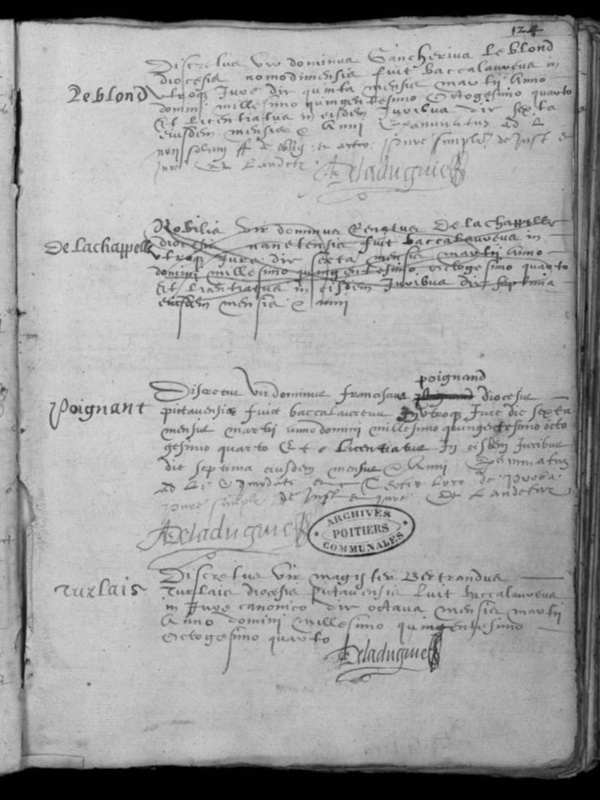 124
Discretus vir dominus Sancherius Leblond
Leblond
diocesis nomodimensis fuit baccalaureus in
utroq Jure die quinta mensis martii Anno
domini millesimo quingentesimo octogesimo quarto
Et licentiatus in eisdem Juribus die sexta
eiusdem mensis & Anni Examinatus ad L
de Just et
Jure De Landetz
Deladuguie
Nobilis vir dominus Renatus De lachappelle
De lachappelle
diocesis nanetensis fuit baccalaureus in
utroq Jure die sexta mensis martii Anno
domini millesimo quingentesimo octogesimo quarto
Et licentiatus in eisdem Juribus die septima
eiusdem mensis & anni
poignand
Discretus vir dominus franciscus diocesis
Poignant
pictavensis fuit baccalaureus In utroq Jure die sexta
mensis martii anno domini millesimo quingentesimo octo
gesimo quarto Et licentiatus In eisdem Juribus
die septima eiusdem mensis & Anni Examinatus
ad
de Just et Jure De Landetz
Deladuguie
ARCHIVES
POITIERS
COMMUNALES
Discretus vir magister Bertrandus
Turlais
Turlais diocesis pictavensis fuit baccalaureus
in Jure canonico die octava mensis martii
Anno domini millesimo quingentesimo
Octogesimo quarto
Deladuguie